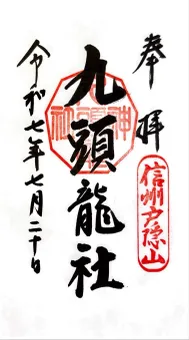 奉拝
信州戸隠山
九頭龍社
令和七年七月二十日